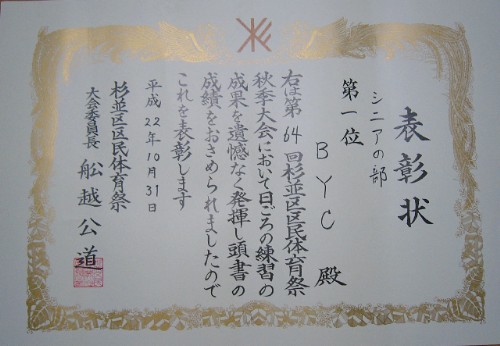 表彰状
シニアの部
第一位
BYC 殿
右は第64回杉並区区民体育祭
秋季大会において日ごろの練習の
成果を遺憾なく発揮し頭書の
成績をおさめられましたので
これを表彰します
平成22年10月31日
杉並区区民体育祭
大会委員長 舩越公道